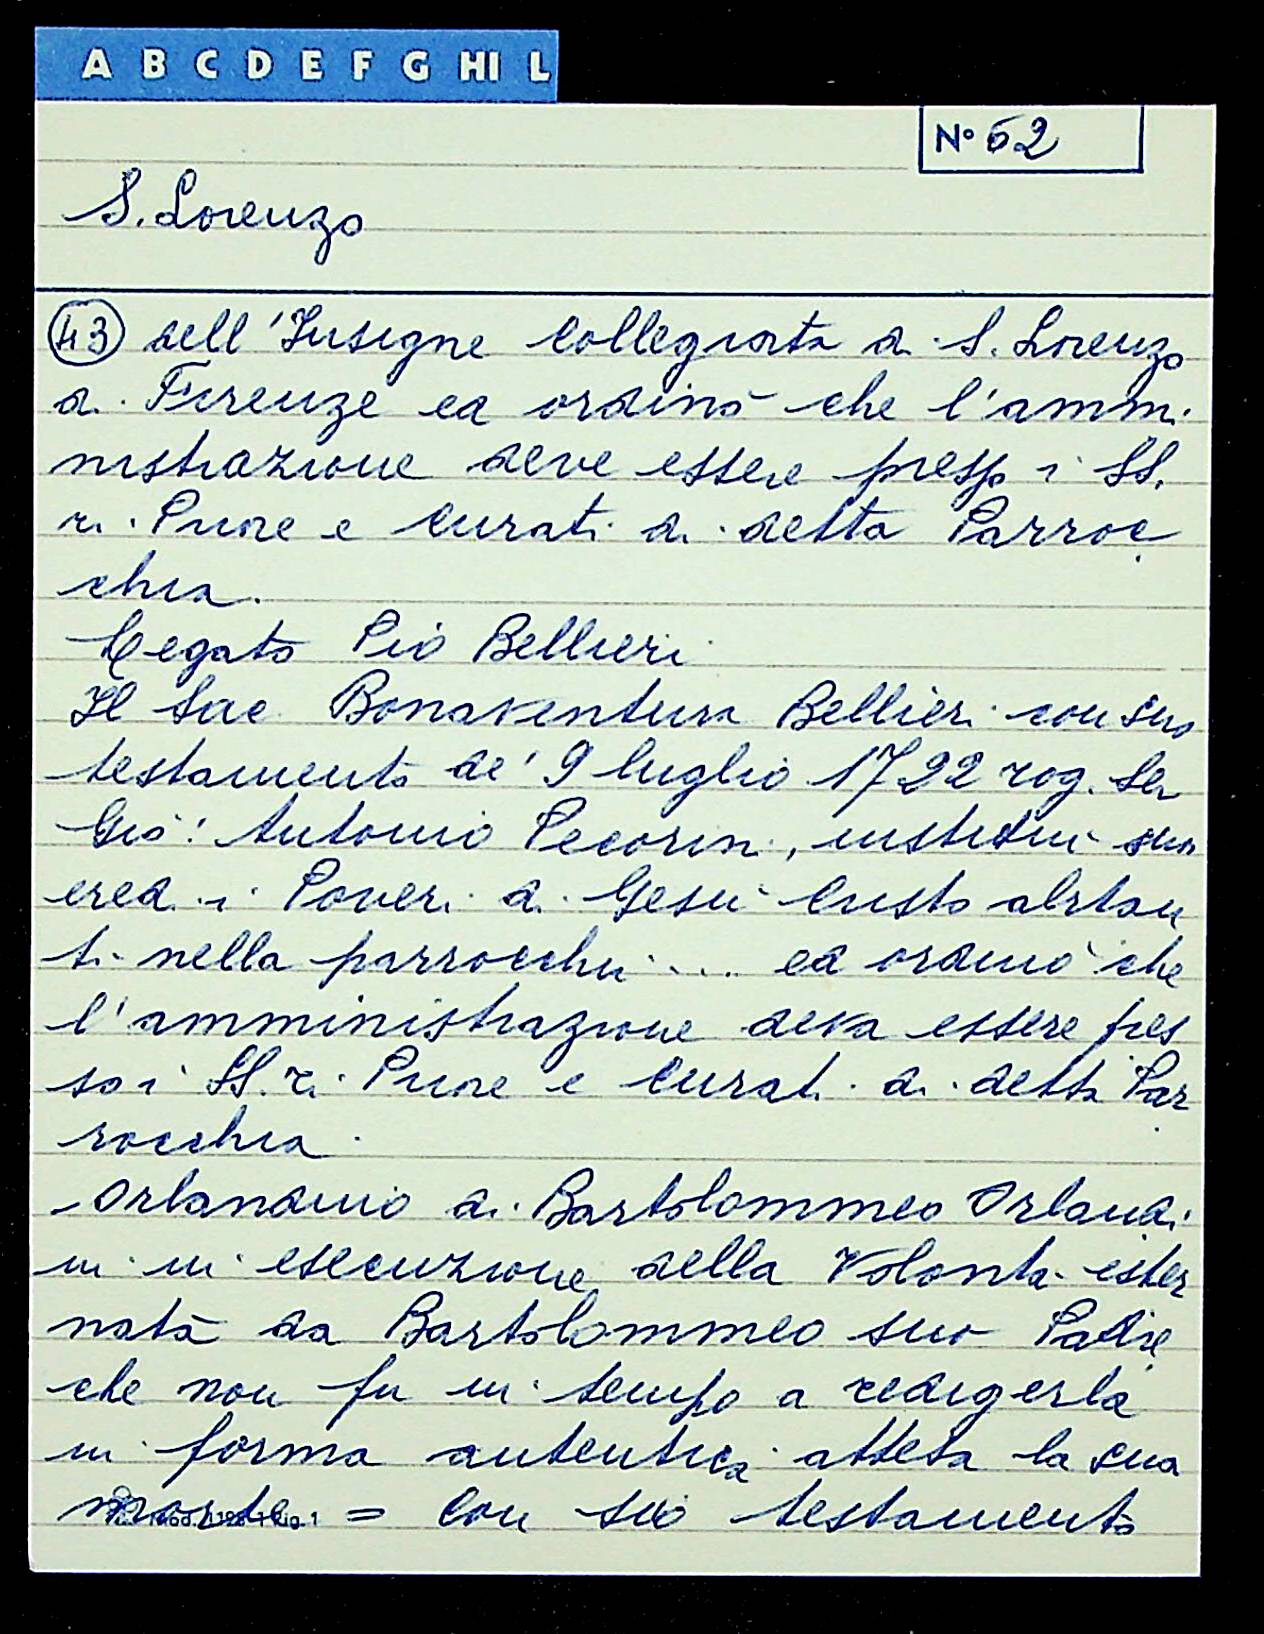 A B C D E F G HI L
N° 62
S. Lorenzo
43 dell'Insigne Collegiata di S. Lorenzo
di Firenze ed ordinò che l'ammi
nistrazione deve essere presso i SS.
ri Priore e Curati di detta Parroc
chia.
Legato Pio Bellieri
Il Sac Bonaventura Bellieri con suo
testamento de' 9 luglio 1722 rog. Ser
Gio: Antonio Pecorini, institui suoi
eredi i Poveri di Gesù Cristo abitan
ti nella parrocchia ... ed ordinò che
l'amministrazione deva essere pres
so i SS. ri Priore e Curati di detta Par
rocchia.
Orlandino di Bartolommeo Orlandi
ni in esecuzione della Volontà ester
nata da Bartolommeo suo Padre
che non fu in tempo a redigerla
in forma autentica attesa la sua
morte = con suo testamento